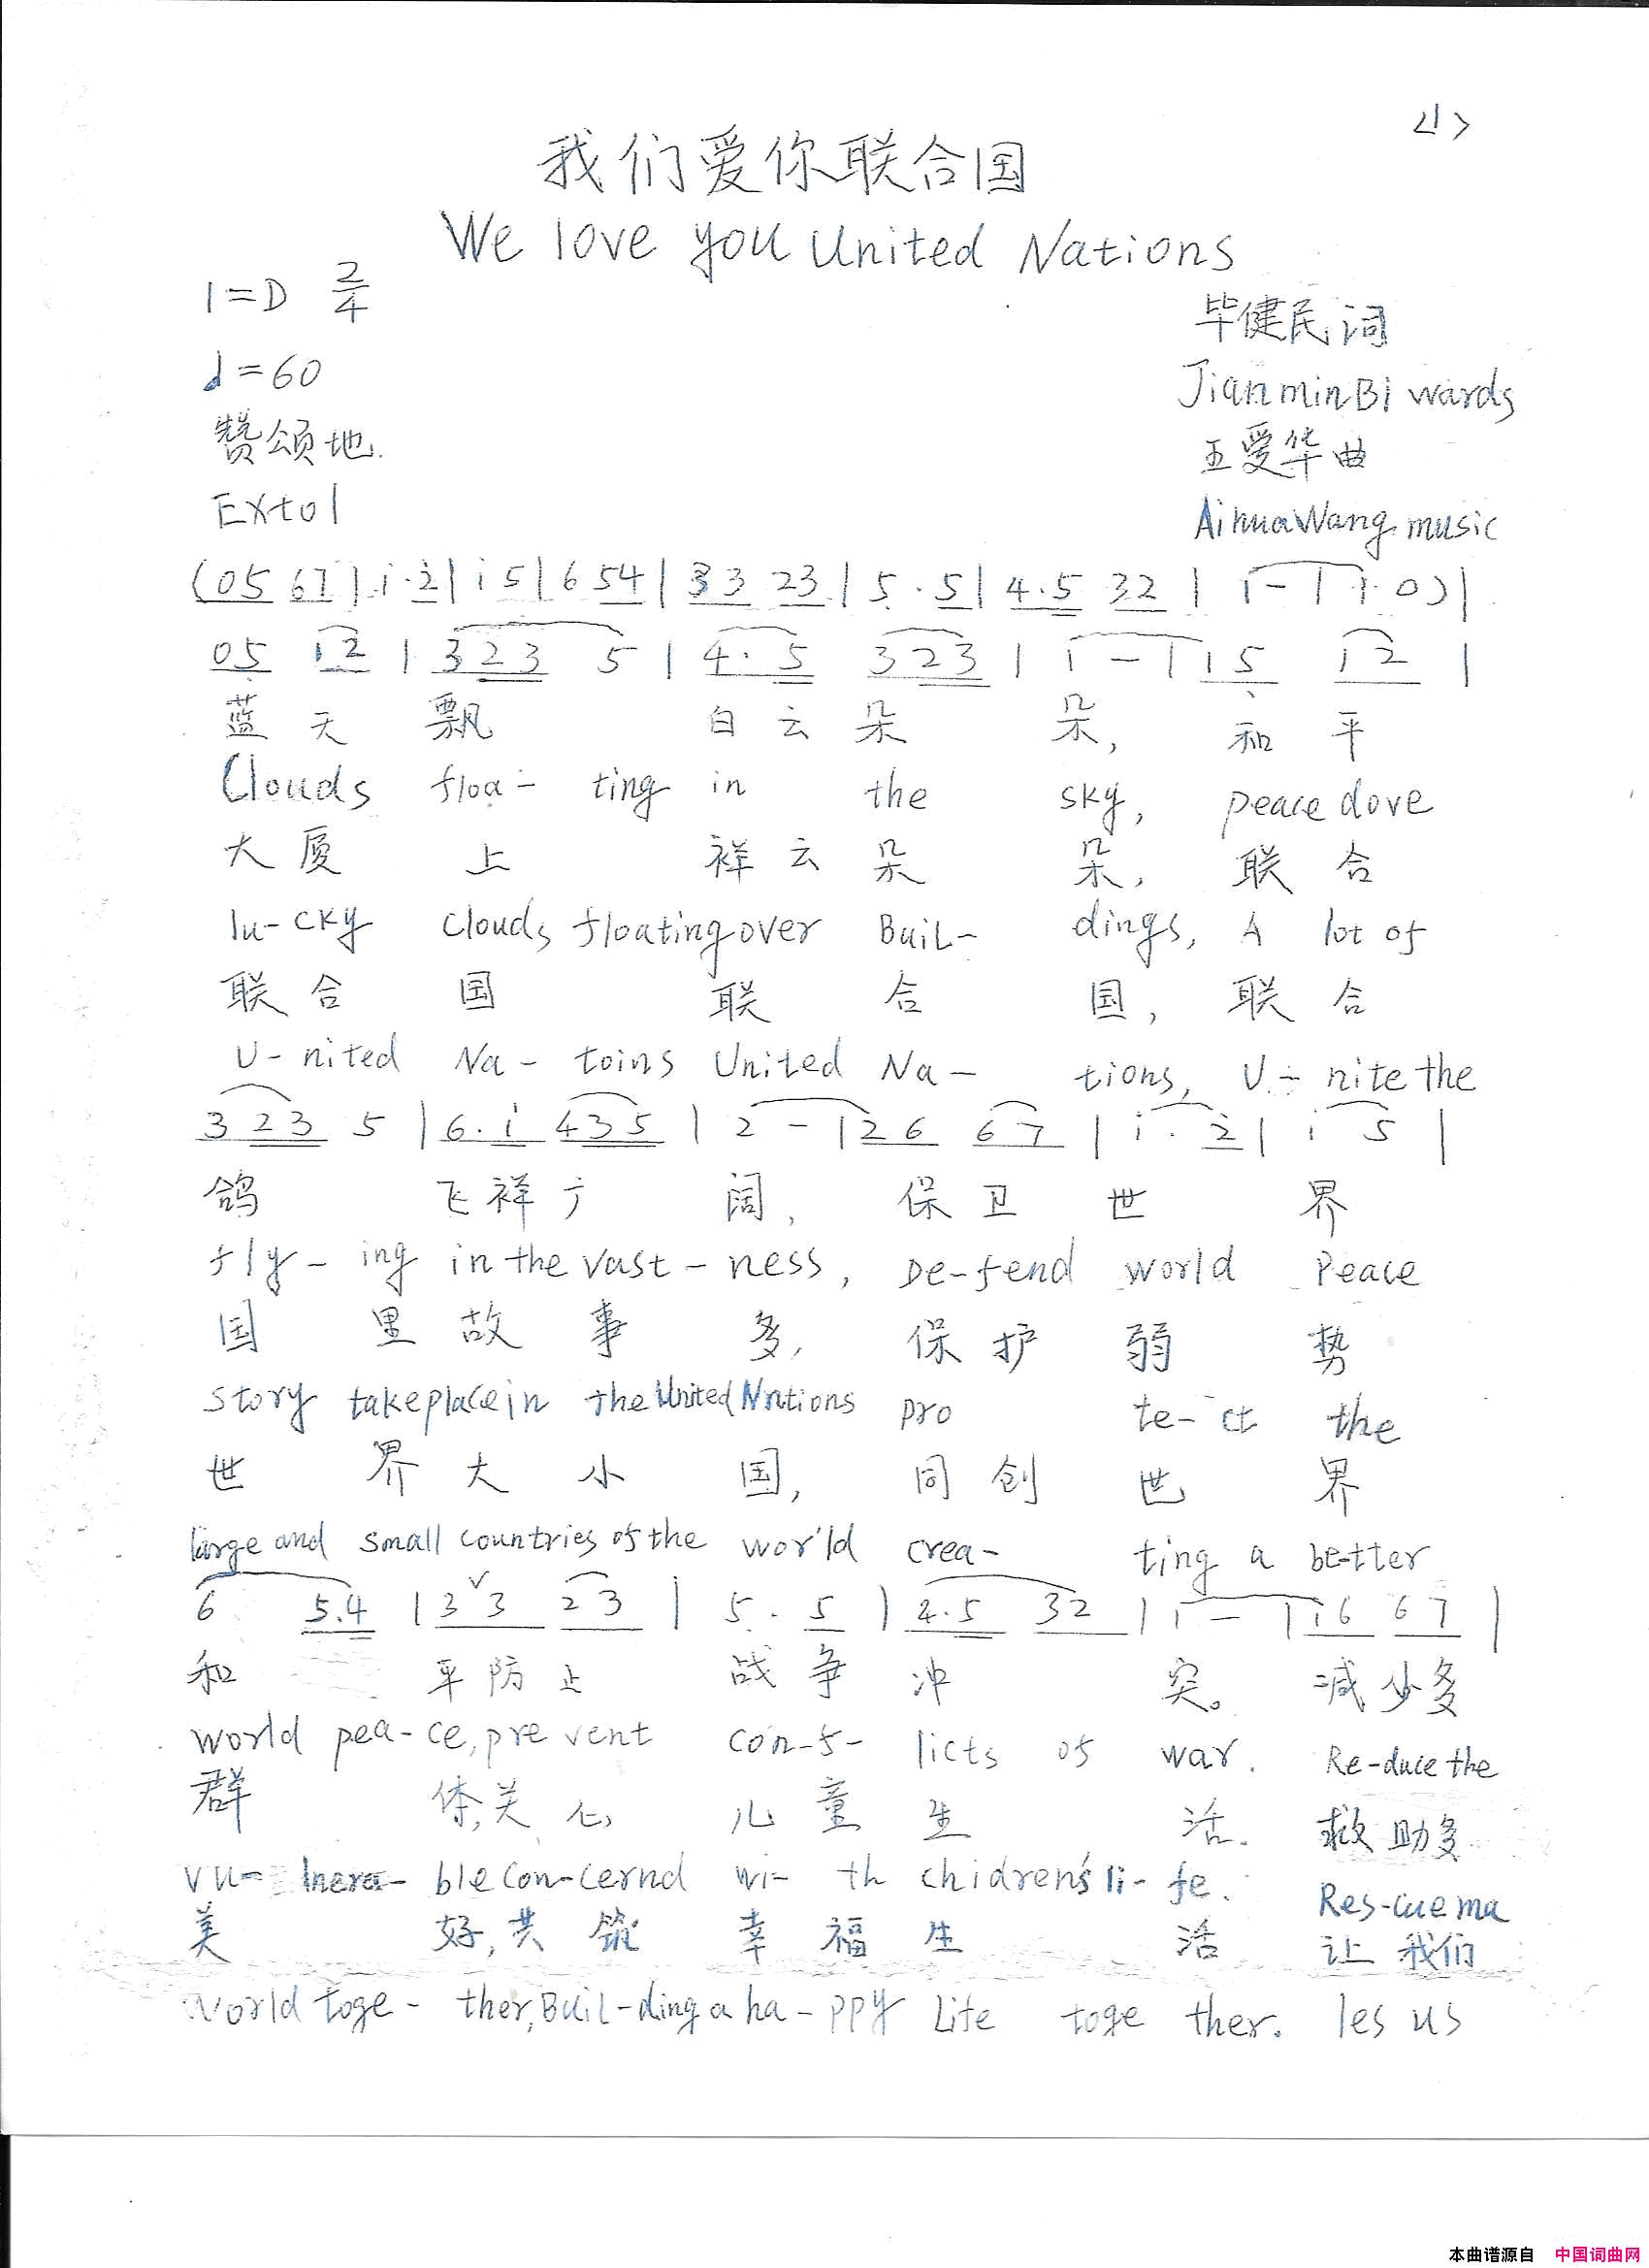 <1>
我们爱你联合国
We love you United Nations
1=D 2/4
毕健民词
♩=60
JianminBi wards
赞颂地.
王爱华曲
Extol
AihuaWang music
(05 67 | i·2 | i 5 | 6 54 | 33 23 | 5·5 | 4·5 32 | 1 - | 1 0) |
05 12 | 323 5 | 4·5 323 | 1 - | 15 12 |
蓝天飘 白云朵 朵, 和平
Clouds floa- ting in the sky, peace dove
大厦上 祥云朵 朵, 联合
lu-cky clouds floating over Buil- dings, A lot of
联合国 联合 国, 联合
U-nited Na- toins United Na- tions, U- nite the
3 23 5 | 6·i 435 | 2 - | 26 67 | i·2 | i 5 |
鸽 飞祥广 阔, 保卫世 界
fly- ing in the vast- ness, De-fend world Peace
国 里故事 多, 保护弱 势
story takeplacein the United Nntions pro te-ct the
世 界大小 国, 同创世 界
large and small countries of the world crea- ting a be-tter
6 5.4 | 3 3 23 | 5·5 | 4·5 32 | 1 - | i6 67 |
和 平防止 战争冲 突。 减少多
world pea-ce, pre vent con-f- licts of war. Re-duce the
群 体,关心 儿童生 活. 救助多
vu- lnera- ble con-cernd wi- th chidren's li- fe. Res-cue ma
美 好,共筑 幸福生 活 让我们
World toge- ther, Buil-ding a ha- ppy Life toge ther. les us
本曲谱源自 中国词曲网